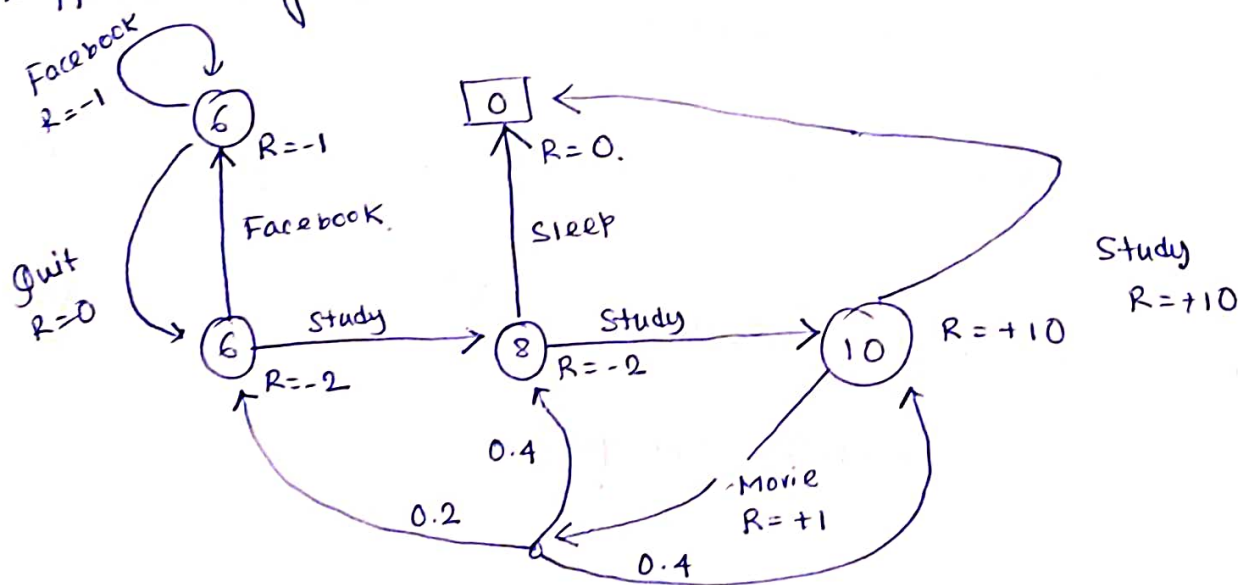 Facebook
R=-1
6
R=-1
0
R=0.
Facebook.
Sleep
Quit
R=0
Study
R=+10
6
Study
R=-2
8
Study
R=-2
10
R=+10
0.4
Movie
R=+1
0.2
0.4